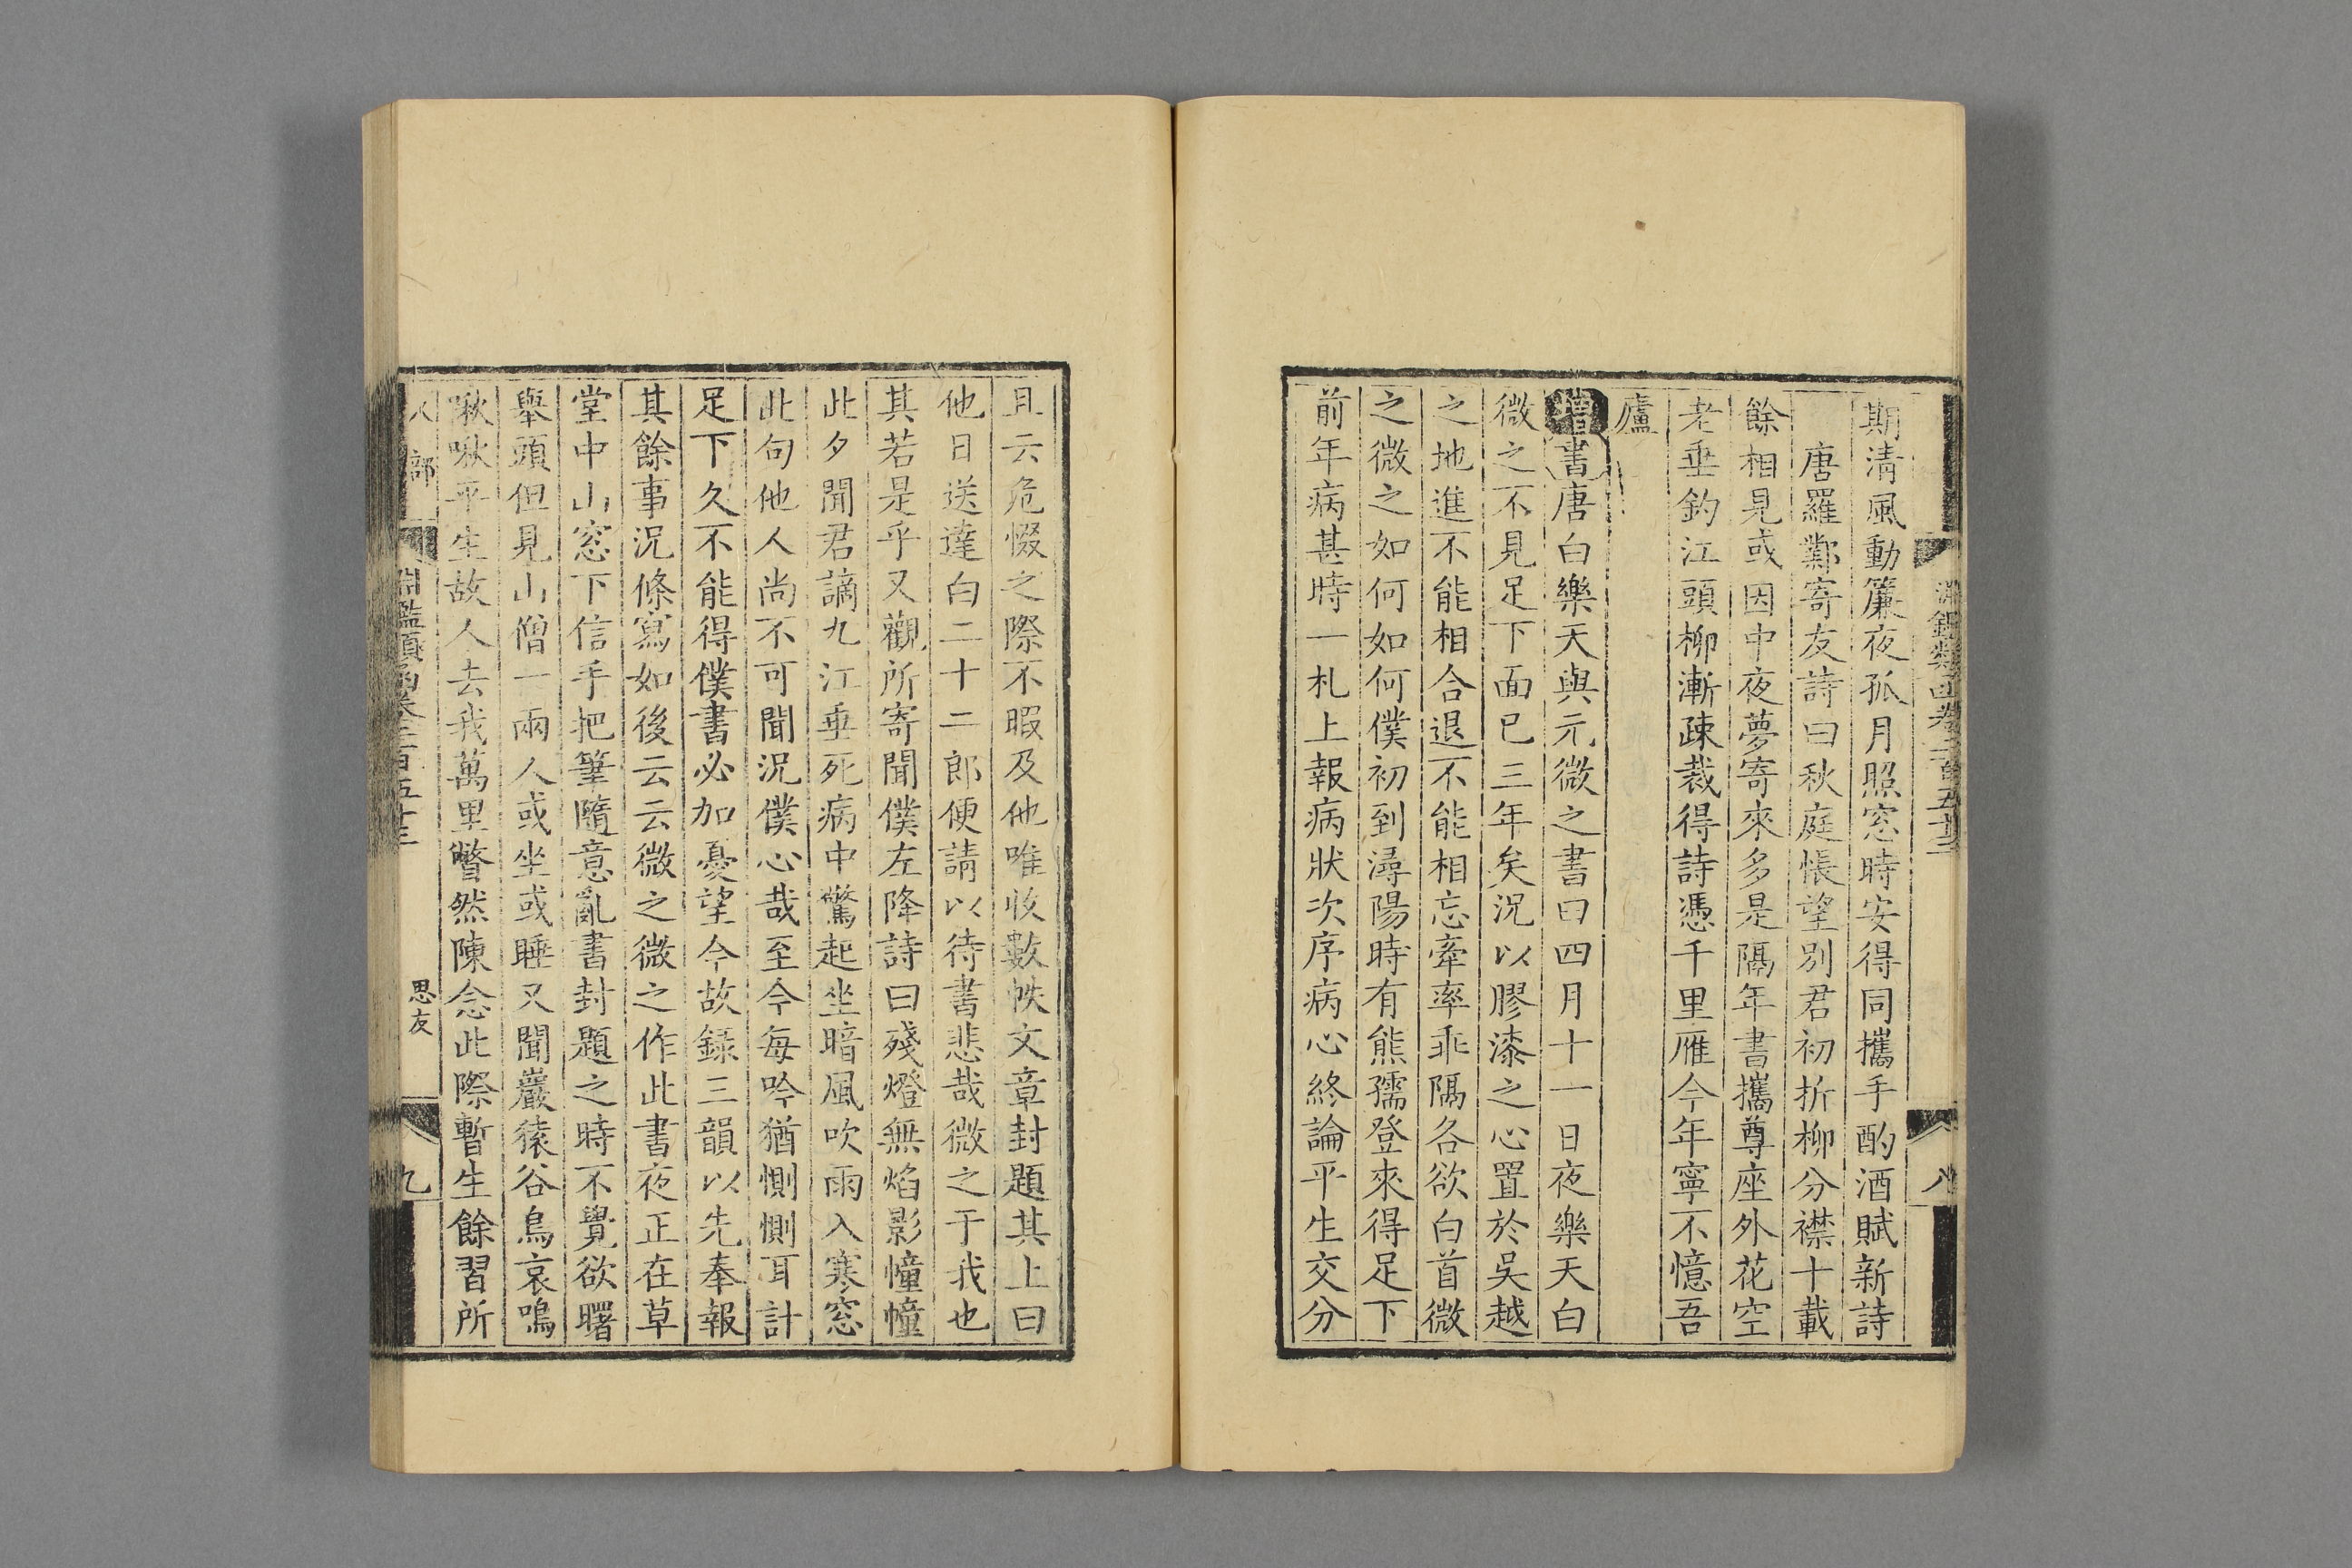 期清風動簾夜孤月照窓時安得同攜手酌酒賦新詩
唐羅鄴寄友詩曰秋庭悵望別君初折柳分襟十載
餘相見或因中夜夢寄來多是隔年書攜尊座外花空
老垂釣江頭柳漸疎裁得詩憑千里雁今年寧不憶吾
廬
增書唐白樂天與元微之書曰四月十一日夜樂天白
微之不見足下面已三年矣況以膠漆之心置於吳越
之地進不能相合退不能相忘牽率乖隔各欲白首微
之微之如何如何僕初到潯陽時有熊孺登來得足下
前年病甚時一札上報病狀次序病心終論平生交分
且云危惙之際不暇及他唯收數帙文章封題其上曰
他日送達白二十二郎便請以待書悲哉微之于我也
其若是乎又觀所寄聞僕左降詩曰殘燈無焰影幢幢
此夕聞君謫九江垂死病中驚起坐暗風吹雨入寒窓
此句他人尚不可聞況僕心哉至今每吟猶惻惻耳計
足下久不能得僕書必加憂望今故錄三韻以先奉報
其餘事況條寫如後云云微之微之作此書夜正在草
堂中山窓下信手把筆隨意亂書封題之時不覺欲曙
舉頭但見山僧一兩人或坐或睡又聞巖猿谷鳥哀鳴
啾啾平生故人去我萬里瞥然陳念此際暫生餘習所
人部
淵鑑類函卷二百五十三
思友
九
淵鑑類函卷二百五十三
八